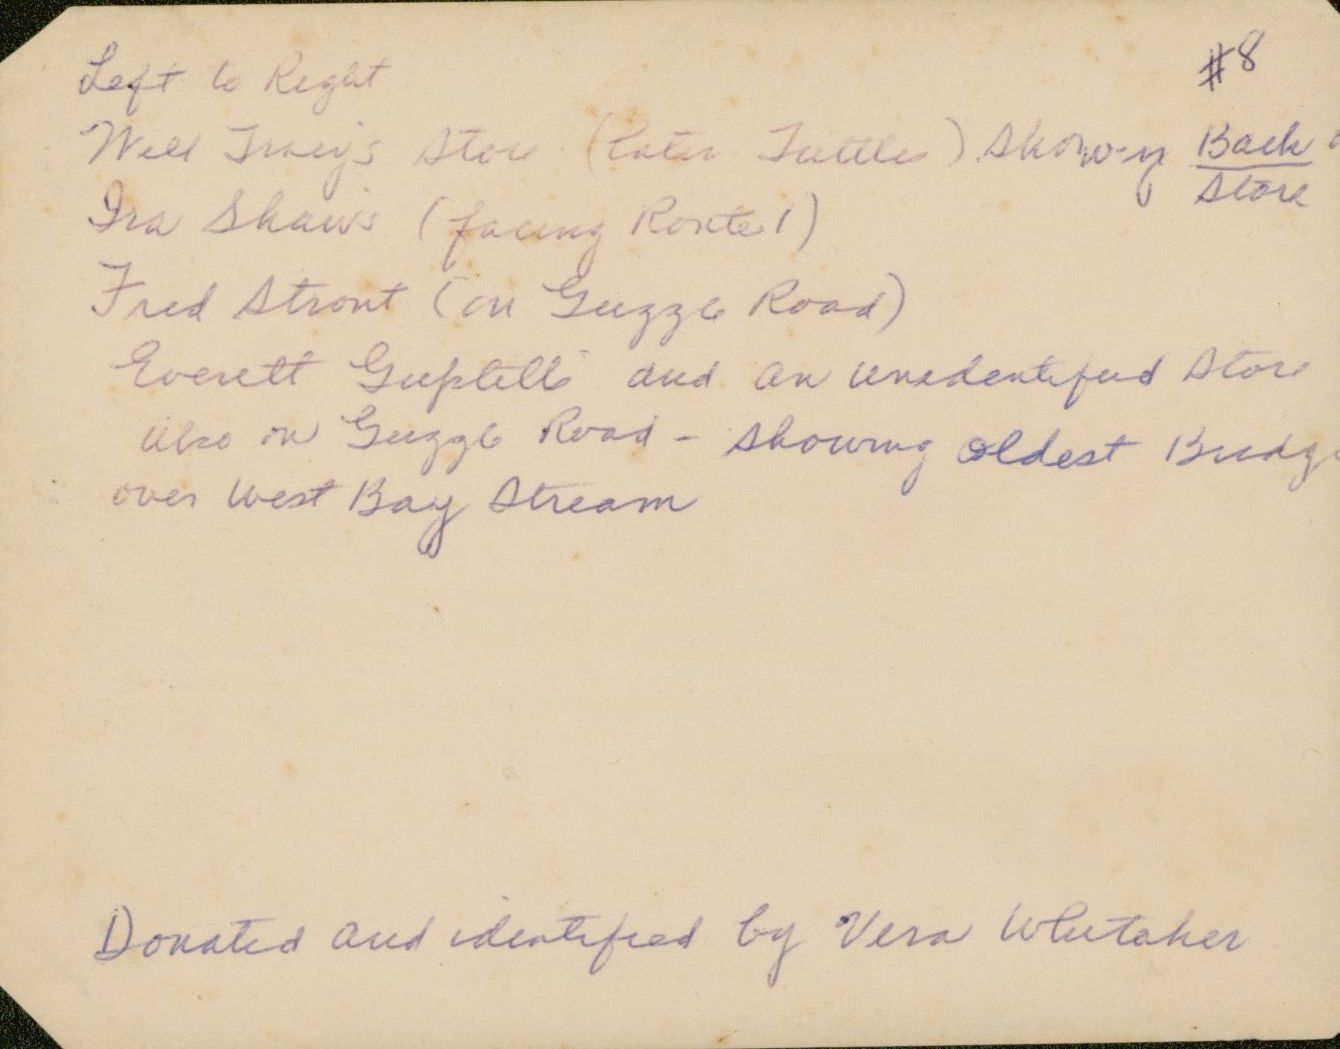 #8
Left to Right
Will Tracy's Store (Later Tuttles) Showing Back
Store
Ira Shaw's (facing Route 1)
Fred Strout (on Guzzle Road)
Everett Guptill's and an unidentified Store
also on Guzzle Road - showing oldest Bridge
over West Bay Stream
Donated and identified by Vera Whitaker